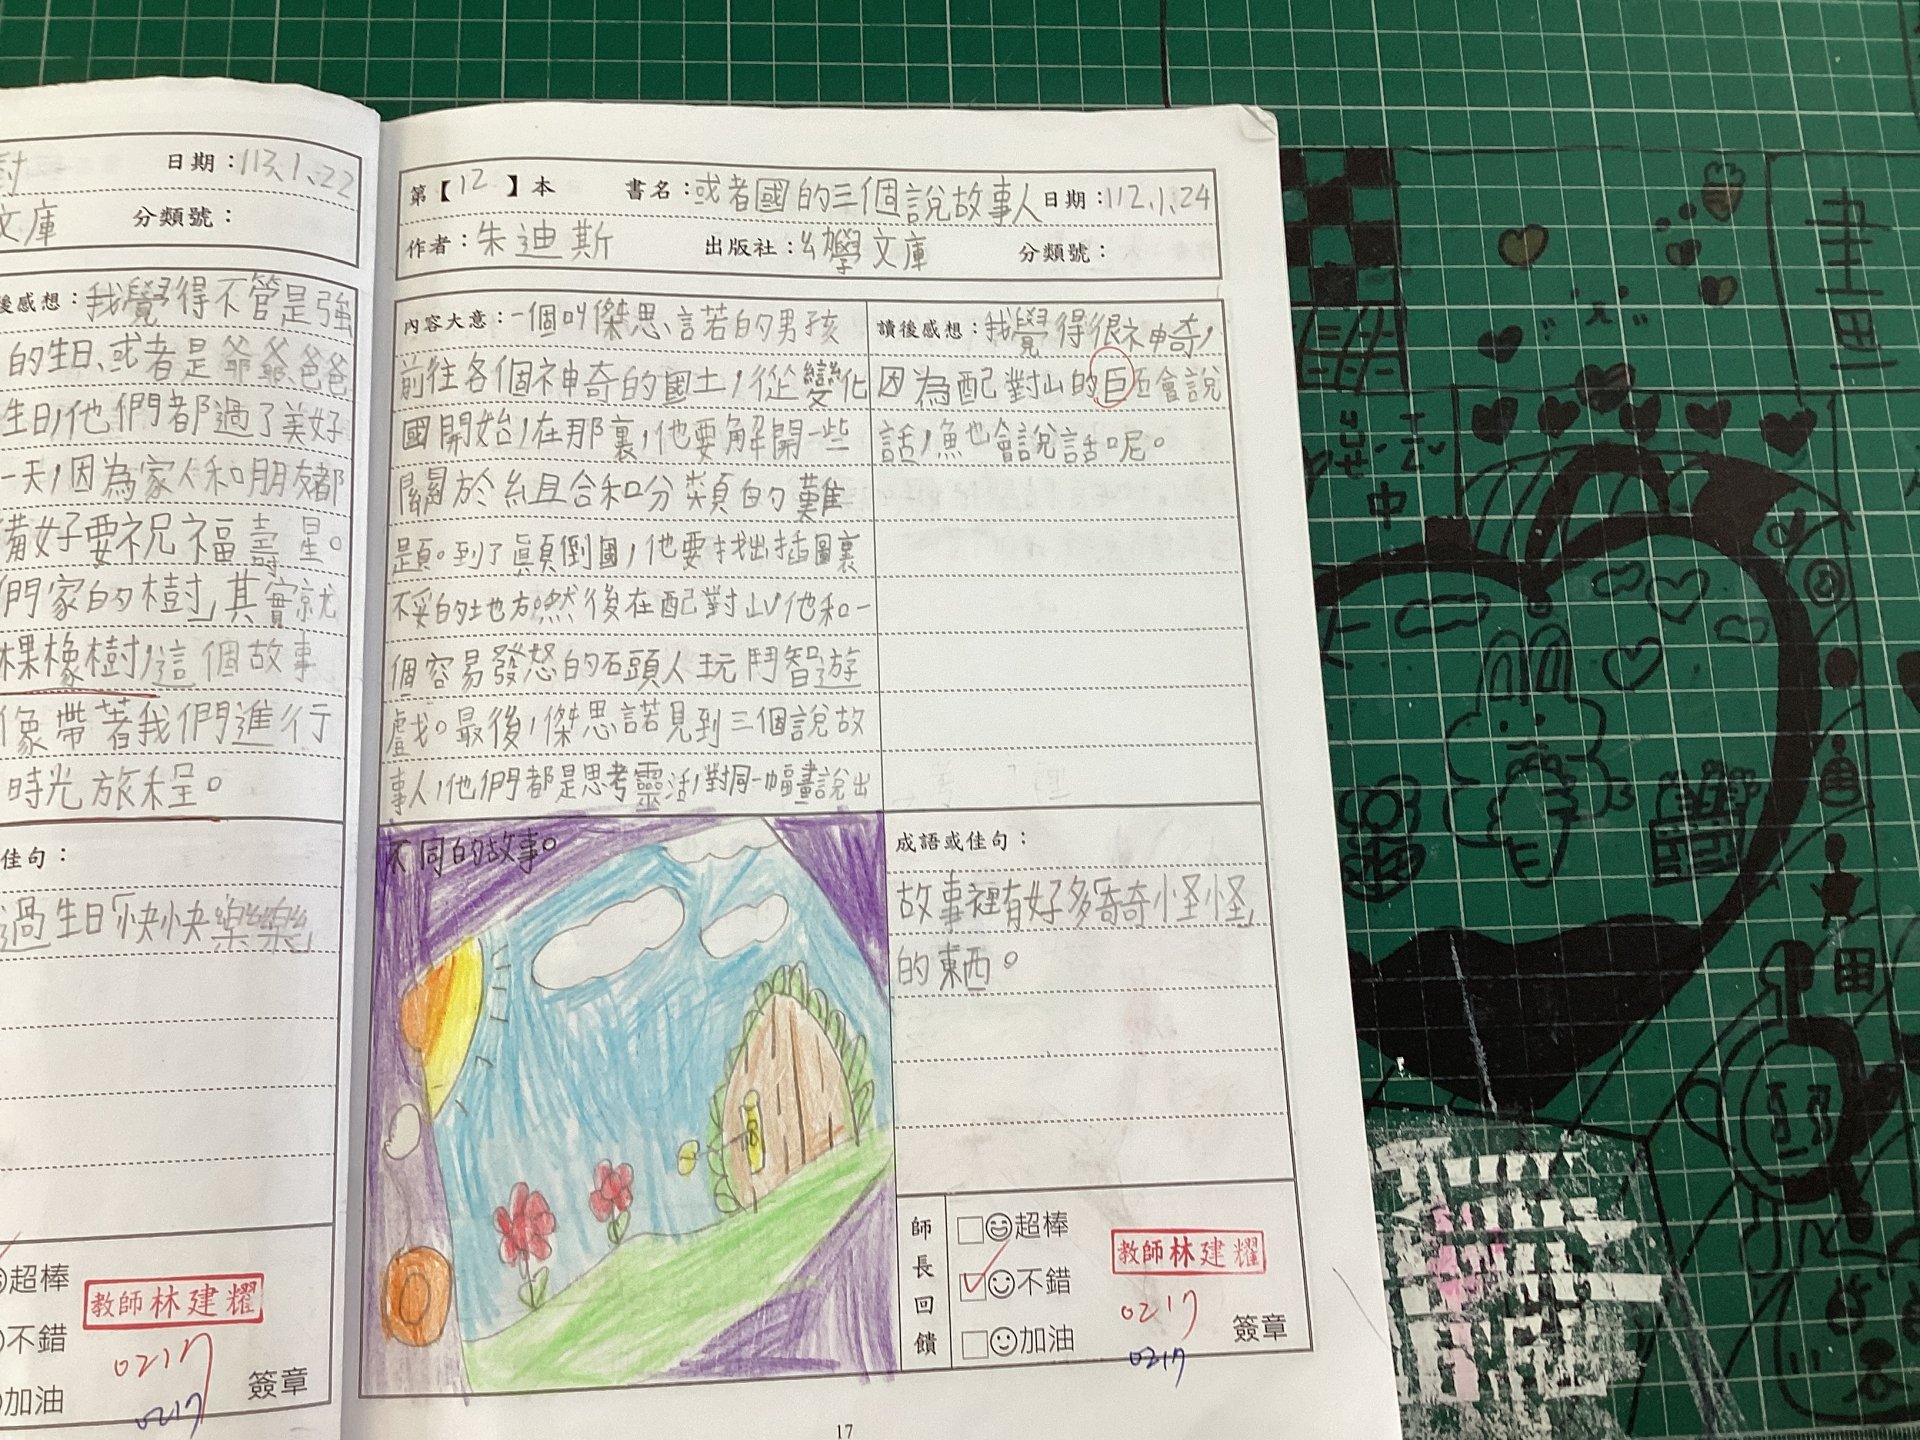 討 日期：113.1.22
文庫 分類號：
後感想：我覺得不管是強
的生日、或者是爺爺、爸爸
生日，他們都過了美好
一天，因為家人和朋友都
備好要祝福壽星。
們家的樹」其實就
棵橡樹，這個故事
像帶著我們進行
時光旅程。
佳句：
過生日「快快樂樂」
超棒
不錯
加油
教師林建耀
0217
0217
簽章
第【12】本 書名：或者國的三個說故事人 日期：112.1.24
作者：朱迪斯 出版社：幼學文庫 分類號：
內容大意：一個叫傑思諾的男孩
前往各個神奇的國土，從變化
國開始，在那裏，他要解開一些
關於組合和分類的難
題。到了顛倒國，他要找出插圖裏
不妥的地方。然後在配對山，他和一
個容易發怒的石頭人玩鬥智遊
戲。最後，傑思諾見到三個說故
事人，他們都是思考靈活，對同一幅畫說出
不同的故事。
讀後感想：我覺得很神奇，
因為配對山的巨石會說
話，魚也會說話呢。
成語或佳句：
故事裡有好多「奇奇怪怪」
的東西。
師長回饋
超棒
不錯
加油
教師林建耀
0217
0217
簽章
17
畫
中